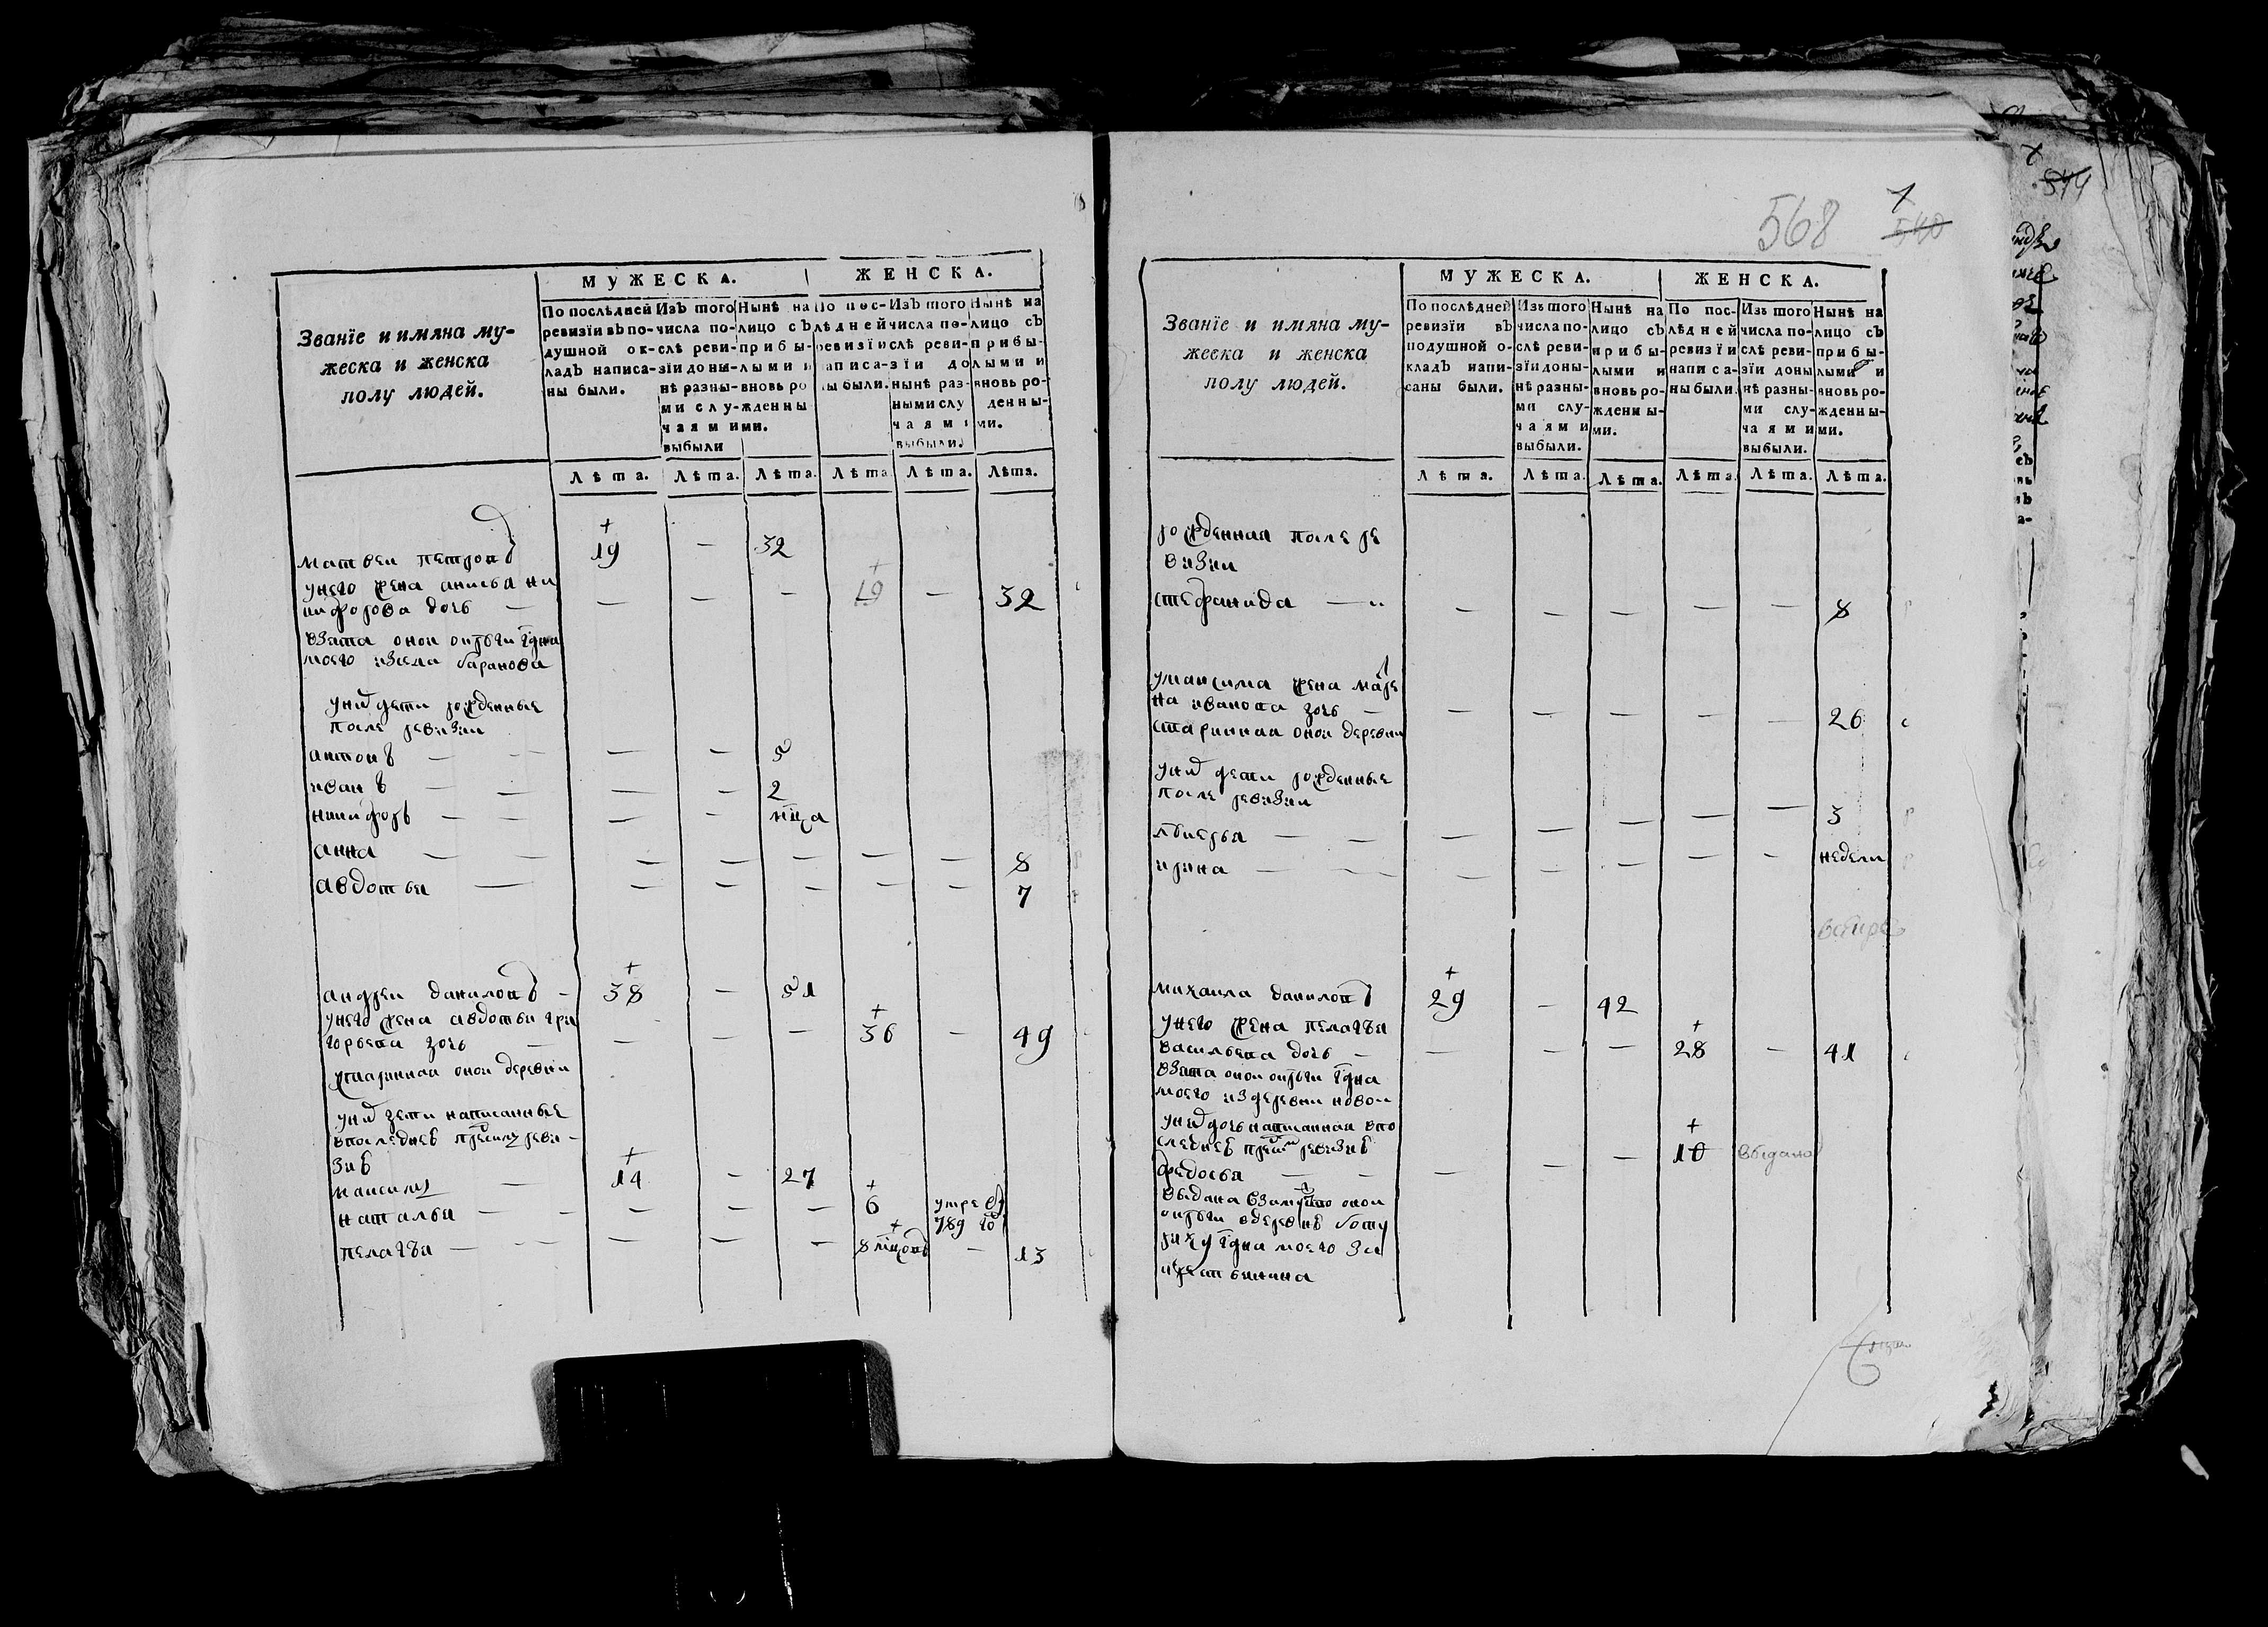 МУЖЕСКА. ЖЕНСКА.
Званїе и имяна му-
жеска и женска
полу людей.
По послѣдней
ревизїи въ по-
душной ок-
ладъ написа-
ны были.
Изъ того
числа по-
слѣ реви-
зїи до ны-
нѣ разны-
ми слу-
чаями
выбыли
Нынѣ на
лицо съ
прибы-
лыми и
вновь ро
жденны
ми.
По пос-
лѣдней
ревизїи
написа-
ны были.
Изъ того
числа по-
слѣ реви-
зїи до
нынѣ раз-
ными слу
чаями
выбыли.
Нынѣ на
лицо съ
прибы-
лыми и
вновь ро-
денны-
ми.
Лѣта. Лѣта. Лѣта. Лѣта Лѣта. Лѣта.
матвеи петровъ 19 — 32
унего жена анисья ни
кифорова дочь — — — — 19 — 32
взята онои округи гдна
моего изсела баранова
уних дети рожденные
после ревизии
антонъ — — — — 5
иванъ — — — — 2
никифоръ — — — — мца
анна — — — — — — — 8
авдотья — — — — — — 7
андреи даниловъ — 38 — 51
унего жена авдотья гри
горьева дочь — — — — 36 — 49
старинная онои деревни
уних дети написанные
впоследнеи пред сим реви-
зиѣ
максимъ — 14 — 27
наталья — — — — — 6 умре въ
789 го
пелагея — — — — 8 мцовъ — 13
568
540
МУЖЕСКА. ЖЕНСКА.
Званїе и имяна му-
жеска и женска
полу людей.
По послѣдней
ревизїи въ
подушной о-
кладъ напи-
саны были.
Изъ того
числа по-
слѣ реви-
зїи до ны-
нѣ разны-
ми слу-
чаями
выбыли.
Нынѣ на
лицо съ
прибы-
лыми и
вновь ро-
жденны-
ми.
По пос-
лѣдней
ревизїи
написа-
ны были.
Изъ того
числа по-
слѣ реви-
зїи до ны
нѣ разны-
ми слу-
чаями
выбыли.
Нынѣ на
лицо съ
прибы-
лыми и
вновь ро-
жденны-
ми.
Лѣта. Лѣта. Лѣта. Лѣта. Лѣта. Лѣта.
рожденная после ре
визии
стефанида — — — — — — 8
умаксима жена маре
на иванова дочь — — — — — — 26
старинная онои деревни
уних дети рожденные
после ревизии
— — — — — — — 3
ирина — — — — — — — недели
михаила даниловъ 29 — 42
унего жена пелагея
васильева дочь — — — — 28 — 41
взята онои округи гдна
моего издеревни новои
уних дочь написанная впо
следнеи пред сим ревизиѣ
федосья — — — — — 10 выдана
выдана взамужество онои
округи вдеревнѣ
гдна моего за
крестьянина
544